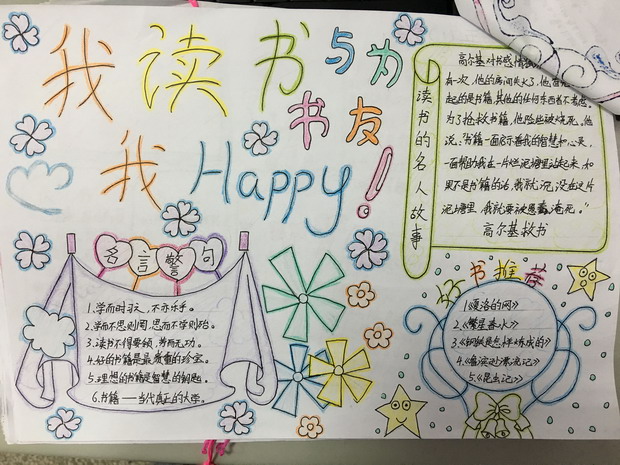 我读书与为
书友
我 Happy!
读书的名人故事
高尔基对书感情独
有一次,他的房间失火了,他
起的是书籍,其他的任何东西都不考虑
为了抢救书籍,他险些被烧死。他
说:"书籍一面启示着我的智慧和心灵,
一面帮助我在一片烂泥塘里站起来,如
果不是书籍的话,我就沉没在这片
泥塘里,我就要被愚蠢淹死。"
高尔基救书
名言警句
1.学而时习之,不亦乐乎。
2.学而不思则罔,思而不学则殆。
3.读书不得要领,劳而无功。
4.好的书籍是最贵重的珍宝。
5.理想的书籍是智慧的钥匙。
6.书籍——当代真正的大学。
好书推荐
1.《夏洛的网》
2.《繁星春水》
3.《钢铁是怎样炼成的》
4.《鲁滨逊漂流记》
5.《昆虫记》